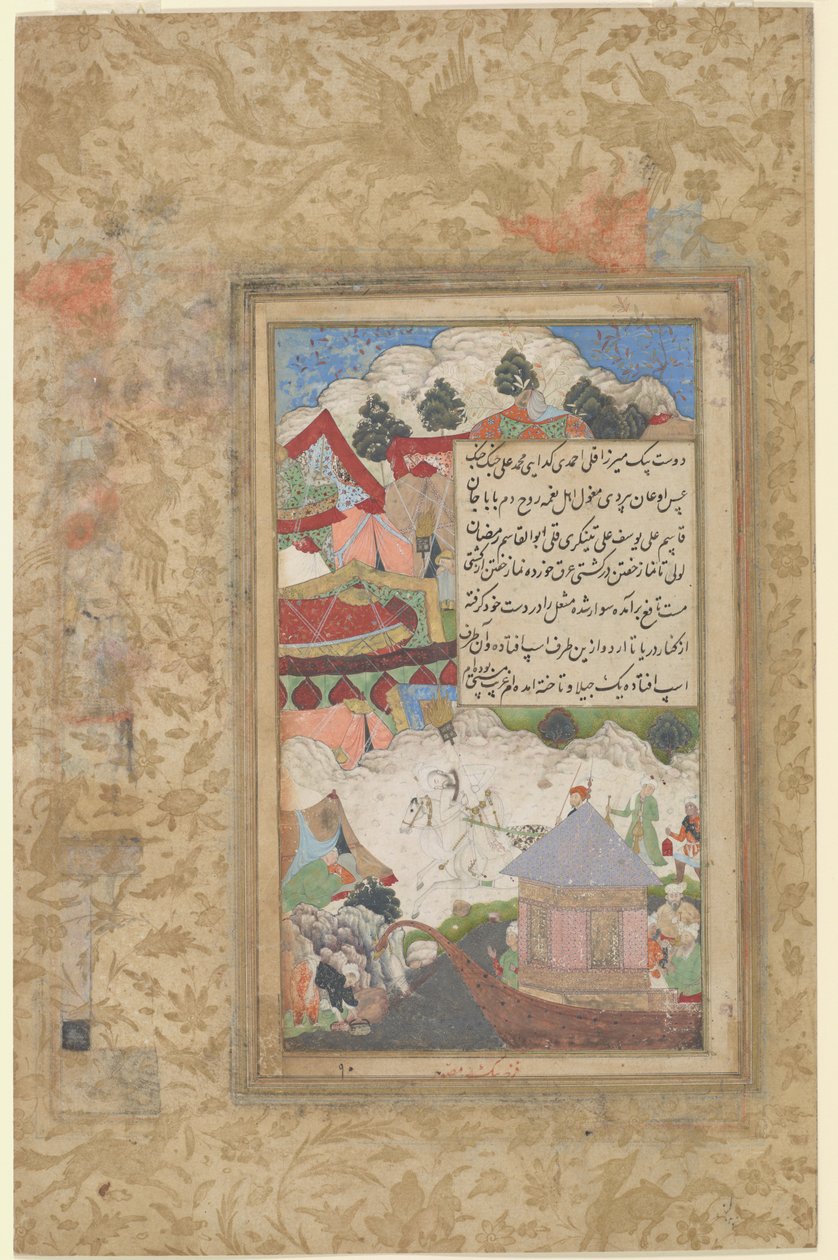 دوست بیک میرزا قلی احمدی کدایی محمد علی جنک جنک
عیس اوغان بردی مغول اهل نغمه روح دم بابا جان
قاسم علی یوسف علی تینکری قلی ابوالقاسم رمضان
لولی تا نماز خفتن در کشتی عرق خورده نماز خفتن از کشتی
مست تافع برآمده سوار شده مشعل را در دست خود گرفته
از کنار دریا تا اردو ازین طرف اسپ افتاده و آن طرف
اسپ افتاده یک جیلاو تاخته آمده ام غریب مستی بوده ام
۹۰